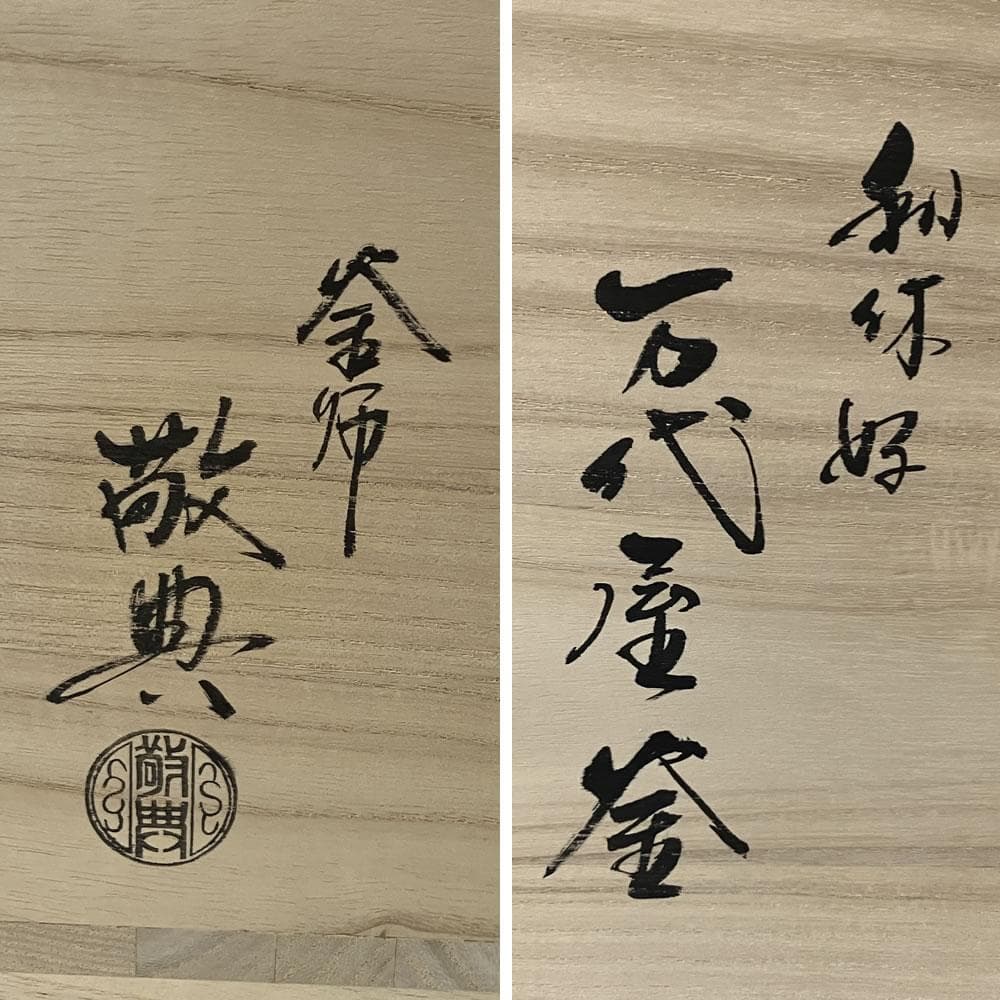 利休好
万代屋釜
釜師
敬典
敬典